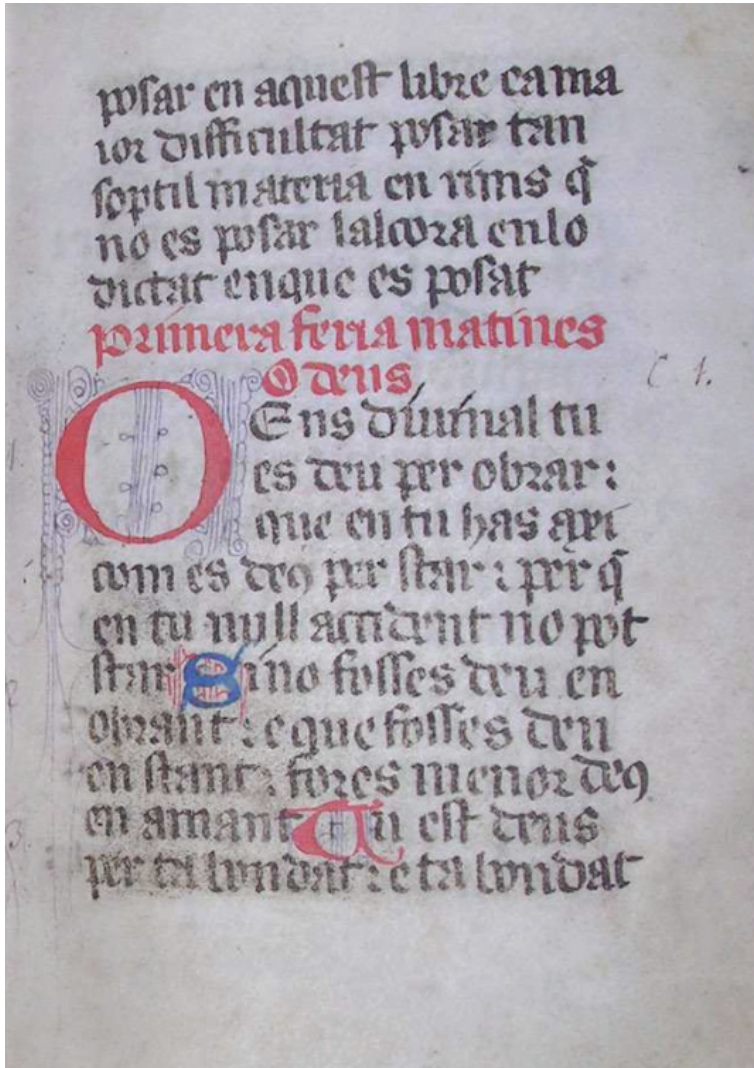 posar en aquest libre ca ma
ior difficultat posar tan
soptil materia en rims q̃
no es posar lalcora en lo
dictat en que es posat
primera feria matines
O deus
O Ens diuinal tu
es deu per obrar :
que en tu has axi
com es deꝯ per star : per q̃
en tu null accident no pot
star Si no fosses deu en
obrant : e que fosses deu
en stant : fores menor deꝯ
en amant Tu est deus
per ta bondat : e ta bondat
C 1.